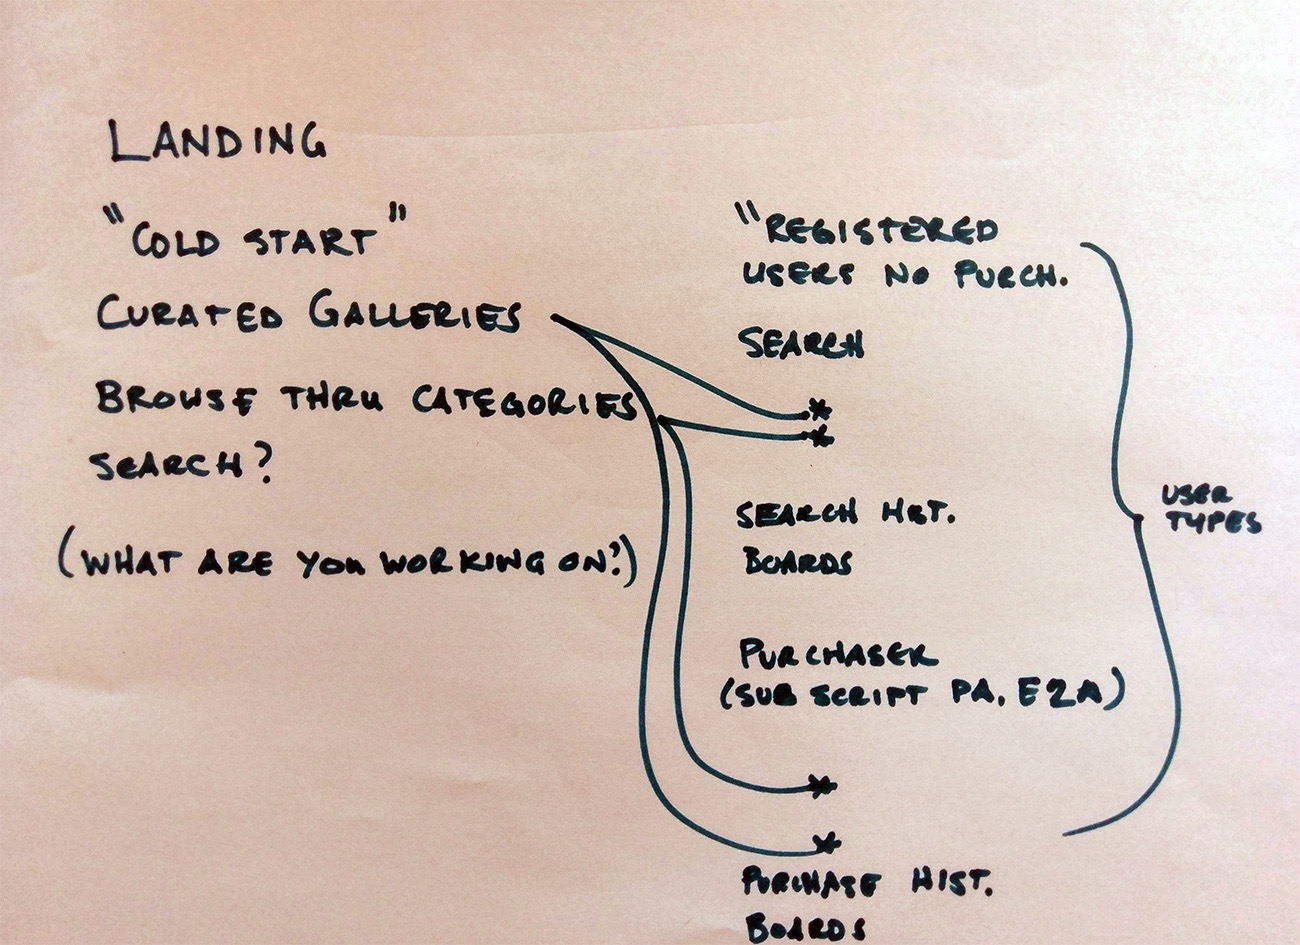 LANDING
"COLD START"
CURATED GALLERIES
BROWSE THRU CATEGORIES
SEARCH?
(WHAT ARE YOU WORKING ON?)
"REGISTERED
USERS NO PURCH.
SEARCH
*
*
SEARCH HST.
BOARDS
PURCHASER
(SUBSCRIPT PA, EZA)
*
*
PURCHASE HIST.
BOARDS
USER
TYPES